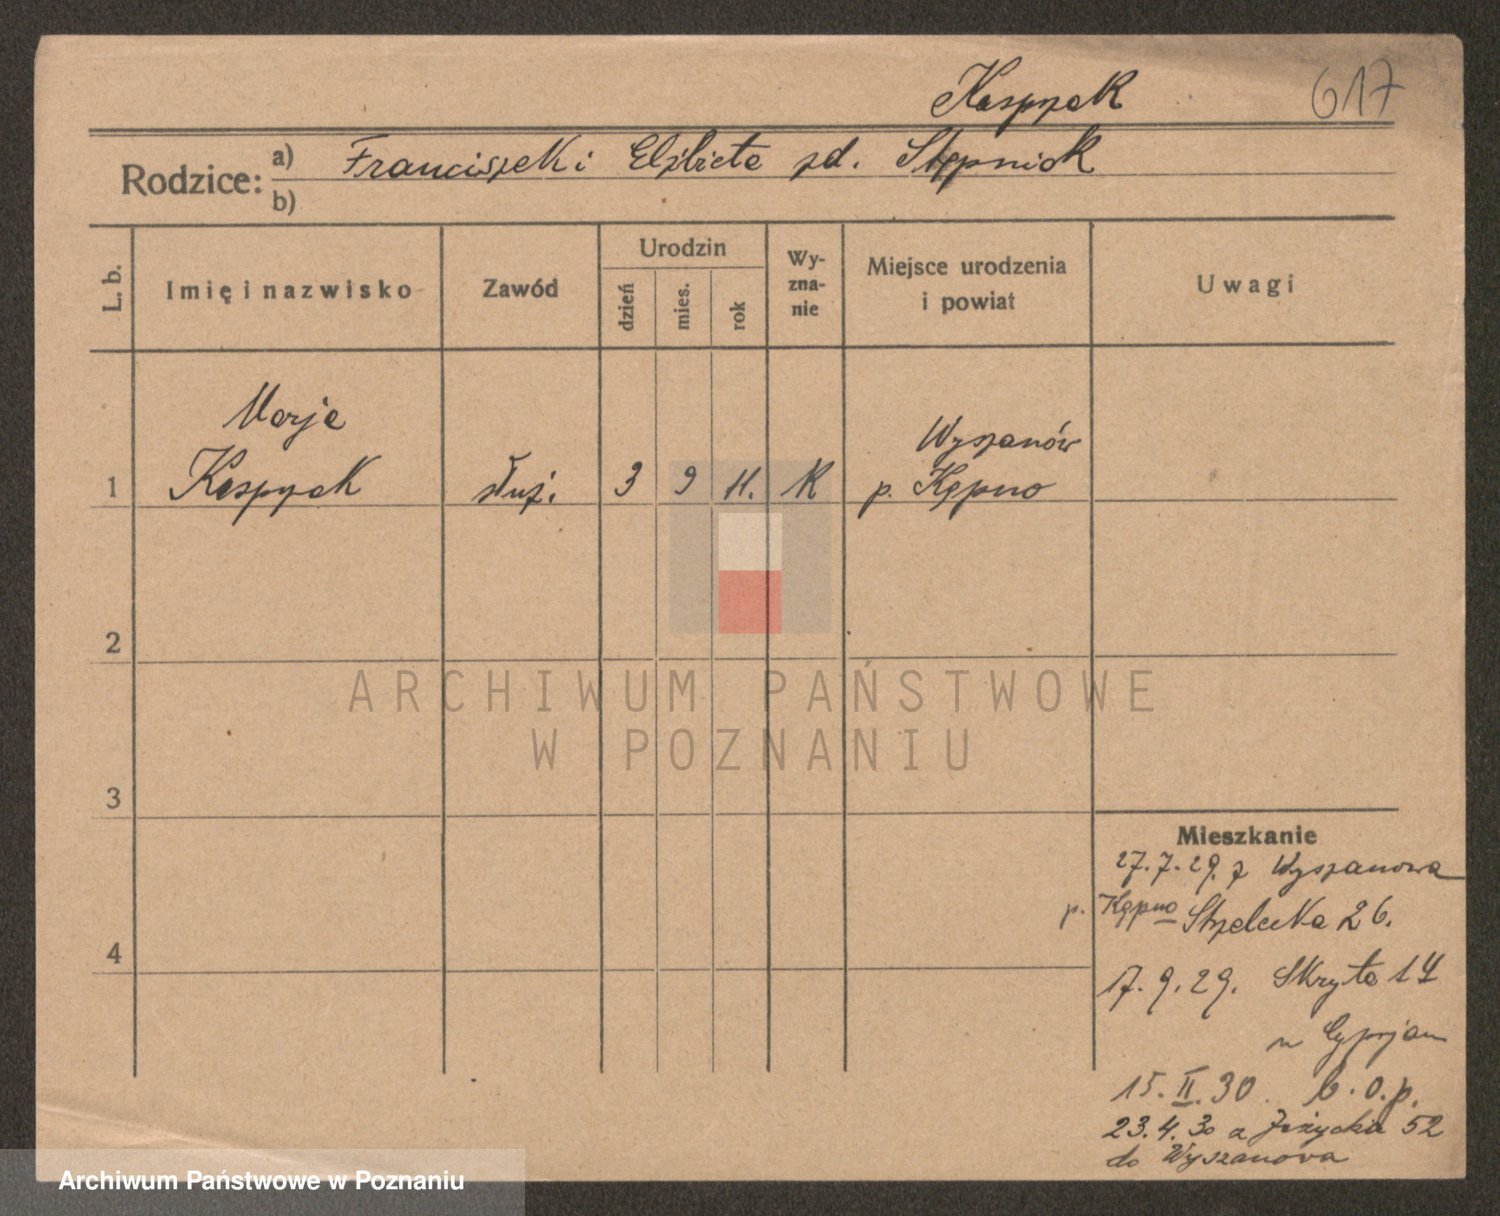 Kaspzak
617
Rodzice: a) Franciszek i Elżbieta zd. Stępniak
b)
L. b.
Imię i nazwisko
Zawód
Urodzin
dzień
mies.
rok
Wy-
zna-
nie
Miejsce urodzenia
i powiat
Uwagi
1
Marja
Kaspzak
służ.
3
9
11.
K
Wyszanów
p. Kępno
2
3
4
ARCHIWUM PAŃSTWOWE
W POZNANIU
Mieszkanie
27.7.29. z Wyszanowa
p. Kępno Strzelecka 26.
17.9.29. Skryta 14
u Cyprjan
15.II.30. b.o.p.
23.4.30 z Jeżycka 52
do Wyszanowa
Archiwum Państwowe w Poznaniu